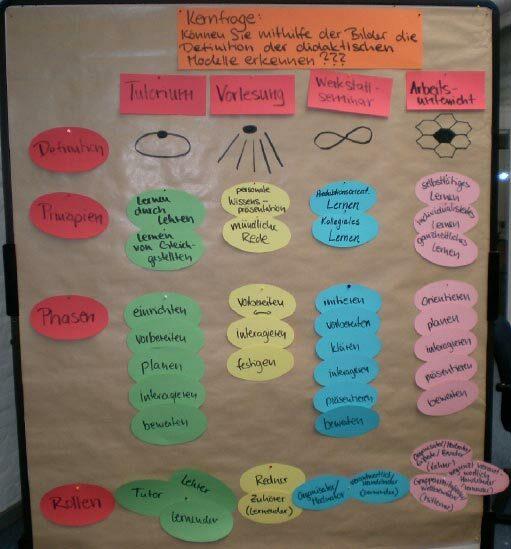 Kernfrage:
Können Sie mithilfe der Bilder die
Definition der didaktischen
Modelle erkennen ???
Tutorium
Vorlesung
Werkstatt-
seminar
Arbeits-
unterricht
Definition
Prinzipien
Lernen
durch
Lehren
Lernen
von Gleich-
gestellten
personale
Wissens-
präsentation
mündliche
Rede
Produktionsorient.
Lernen
Kollegiales
Lernen
selbsttätiges
Lernen
individualisiertes
Lernen
ganzheitliches
Lernen
Phasen
einrichten
vorbereiten
planen
interagieren
bewerten
Vorbereiten
interagieren
festigen
initiieren
vorbereiten
klären
interagieren
präsentieren
bewerten
Orientieren
planen
interagieren
präsentieren
bewerten
Rollen
Tutor
Lehrer
Lernender
Redner
Zuhörer
(Lernender)
Organisator/
Moderator
verantwortlich/
Handelnder
(Lernender)
Organisator/
Berater
(Lehrer)
Handelnder
(Lernender)